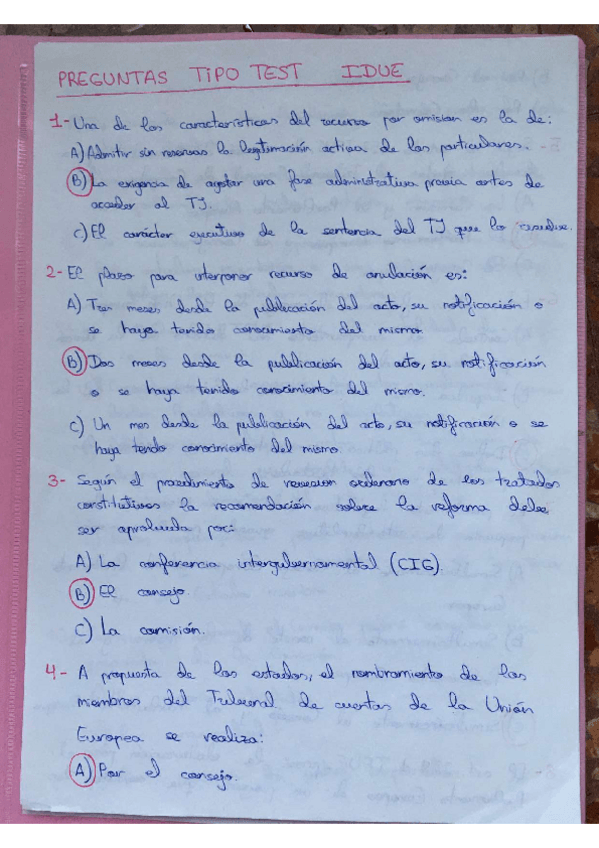 PREGUNTAS TIPO TEST IDUE
1- Una de las características del recurso por omision es la de:
A) Admitir sin reservas la legitimación activa de los particulares.
B) La exigencia de agotar una fase administrativa previa antes de
acceder al TJ
C) El carácter ejecutivo de la sentencia del TJ que lo
2- El plazo para interponer recurso de anulación es:
A) Tres meses desde la publicación del acto, su notificación o
se haya tenido conocimiento del mismo.
B) Dos meses desde la publicación del acto, su notificación
o se haya tenido conocimiento del mismo.
C) Un mes desde la publicación del acto, su notificación o se
haya tendo conocimiento del mismo
3- Según el procedimiento de revision ordenario de los tratados
constitutivos la recomendación sobre la reforma debe
ser aprobada por:
A) La conferencia intergubernamental (CIG)
B) El consejo
C) La comisión.
4- A propuesta de los estados, el nombramiento de los
miembros del Tribunal de cuentas de la Unión
Europea se realiza:
A) Por el consejo.